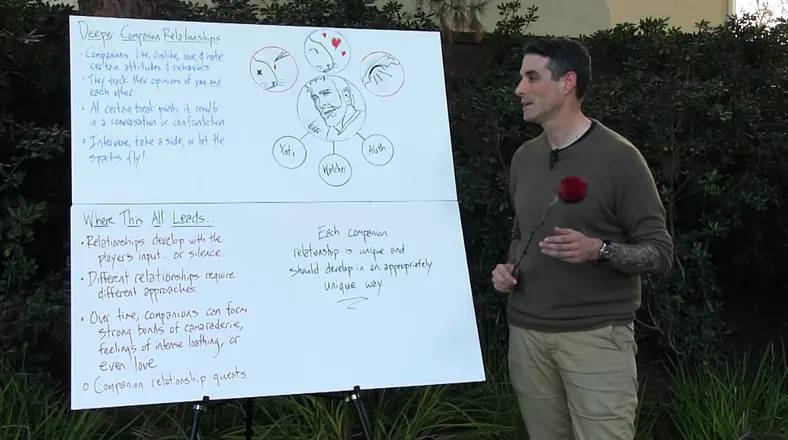 Deeper Companion Relationships
• Companions like, dislike, love, & hate
certain attitudes & behaviors
• They track their opinions of you and
each other
• At certain break points it results
in a conversation or confrontation
• Intervene, take a side, or let the
sparks fly!
Edér
Yoti
Watcher
Aloth
Where This All Leads...
• Relationships develop with the
player's input... or silence.
• Different relationships require
different approaches.
• Over time, companions can form
strong bonds of camaraderie,
feelings of intense loathing, or
even love
o Companion relationship quests
Each companion
relationship is unique and
should develop in an appropriately
unique way.